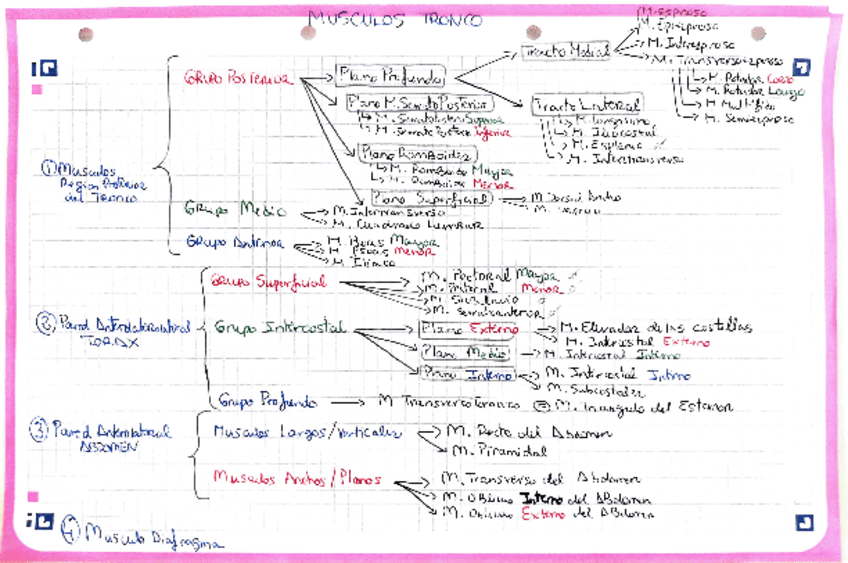 MUSCULOS TRONCO
GRUPO POSTERIOR
Plano Profundo
Tracto Medial
M. Espinoso
M. Epiespinoso
M. Interespinoso
M. Transversoespinoso
M. Rotador Corto
M. Rotador Largo
M. Multífido
M. Semiespinoso
Tracto Lateral
M. Longisimo
M. Iliocostal
M. Esplenio
M. Intertransverso
Plano M. Serrato Posterior
M. Serrato Posterior Superior
M. Serrato Posterior Inferior
Plano Romboides
M. Romboides Mayor
M. Romboides Menor
Plano Superficial
M. Dorsal Ancho
① Musculos
Region Posterior
del Tronco
Grupo Medio
M. Intertransverso
M. Cuadrado Lumbar
Grupo Anterior
M. Psoas Mayor
M. Psoas Menor
M. Iliaco
② Pared Anterolateral
TORAX
Grupo Superficial
M. Pectoral Mayor
M. Pectoral Menor
M. Subclavio
Grupo Intercostal
Plano Externo
M. Elevador de las costillas
M. Intercostal Externo
Plano Medio
M. Intercostal Intimo
Plano Interno
M. Intercostal Interno
M. Subcostales
Grupo Profundo
M Transverso Toracico = M. Triangulo del Esternon
③ Pared Anterolateral
ABDOMEN
Musculos Largos/Verticales
M. Recto del Abdomen
M. Piramidal
Musculos Anchos/Planos
M. Transverso del Abdomen
M. Oblicuo Interno del Abdomen
M. Oblicuo Externo del Abdomen
④ Musculo Diafragma